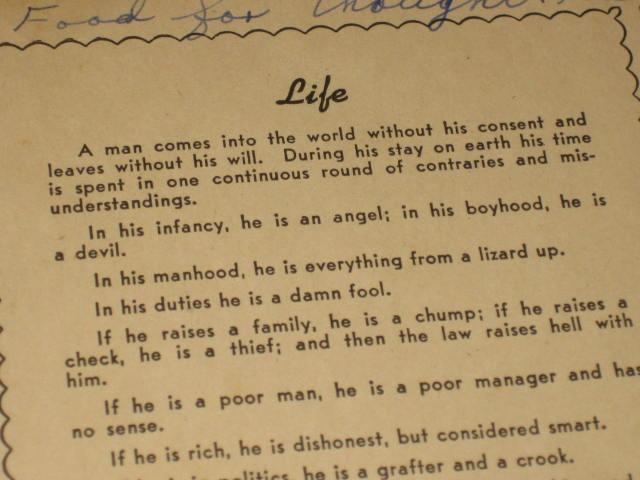 Food for thought..
Life
A man comes into the world without his consent and
leaves without his will. During his stay on earth his time
is spent in one continuous round of contraries and mis-
understandings.
In his infancy, he is an angel; in his boyhood, he is
a devil.
In his manhood, he is everything from a lizard up.
In his duties he is a damn fool.
If he raises a family, he is a chump; if he raises a
check, he is a thief; and then the law raises hell with
him.
If he is a poor man, he is a poor manager and has
no sense.
If he is rich, he is dishonest, but considered smart.
politics, he is a grafter and a crook.